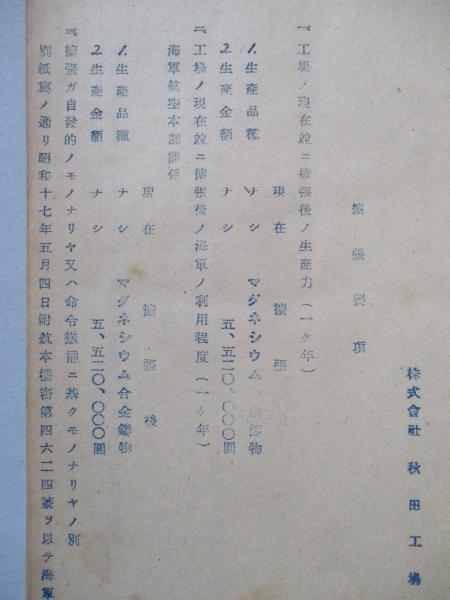 株式會社 秋田工場
擴張要項
一、工場ノ現在竝ニ擴張後ノ生産力(一ケ年)
現在 擴張
1.生産品種 ナシ マグネシウム 鑄物
2.生産金額 ナシ 五、五二〇、〇〇〇圓
二、工場ノ現在竝ニ擴張後ノ海軍ノ利用程度(一ケ年)
海軍航空本部關係
現在 擴張後
1.生産品種 ナシ マグネシウム合金鑄物
2.生産金額 ナシ 五、五二〇、〇〇〇圓
三、擴張ガ自發的ノモノナリヤ又ハ命令慫慂ニ基クモノナリヤノ別
別紙寫ノ通リ昭和十七年五月四日附航本機密第四六二四號ヲ以テ海軍